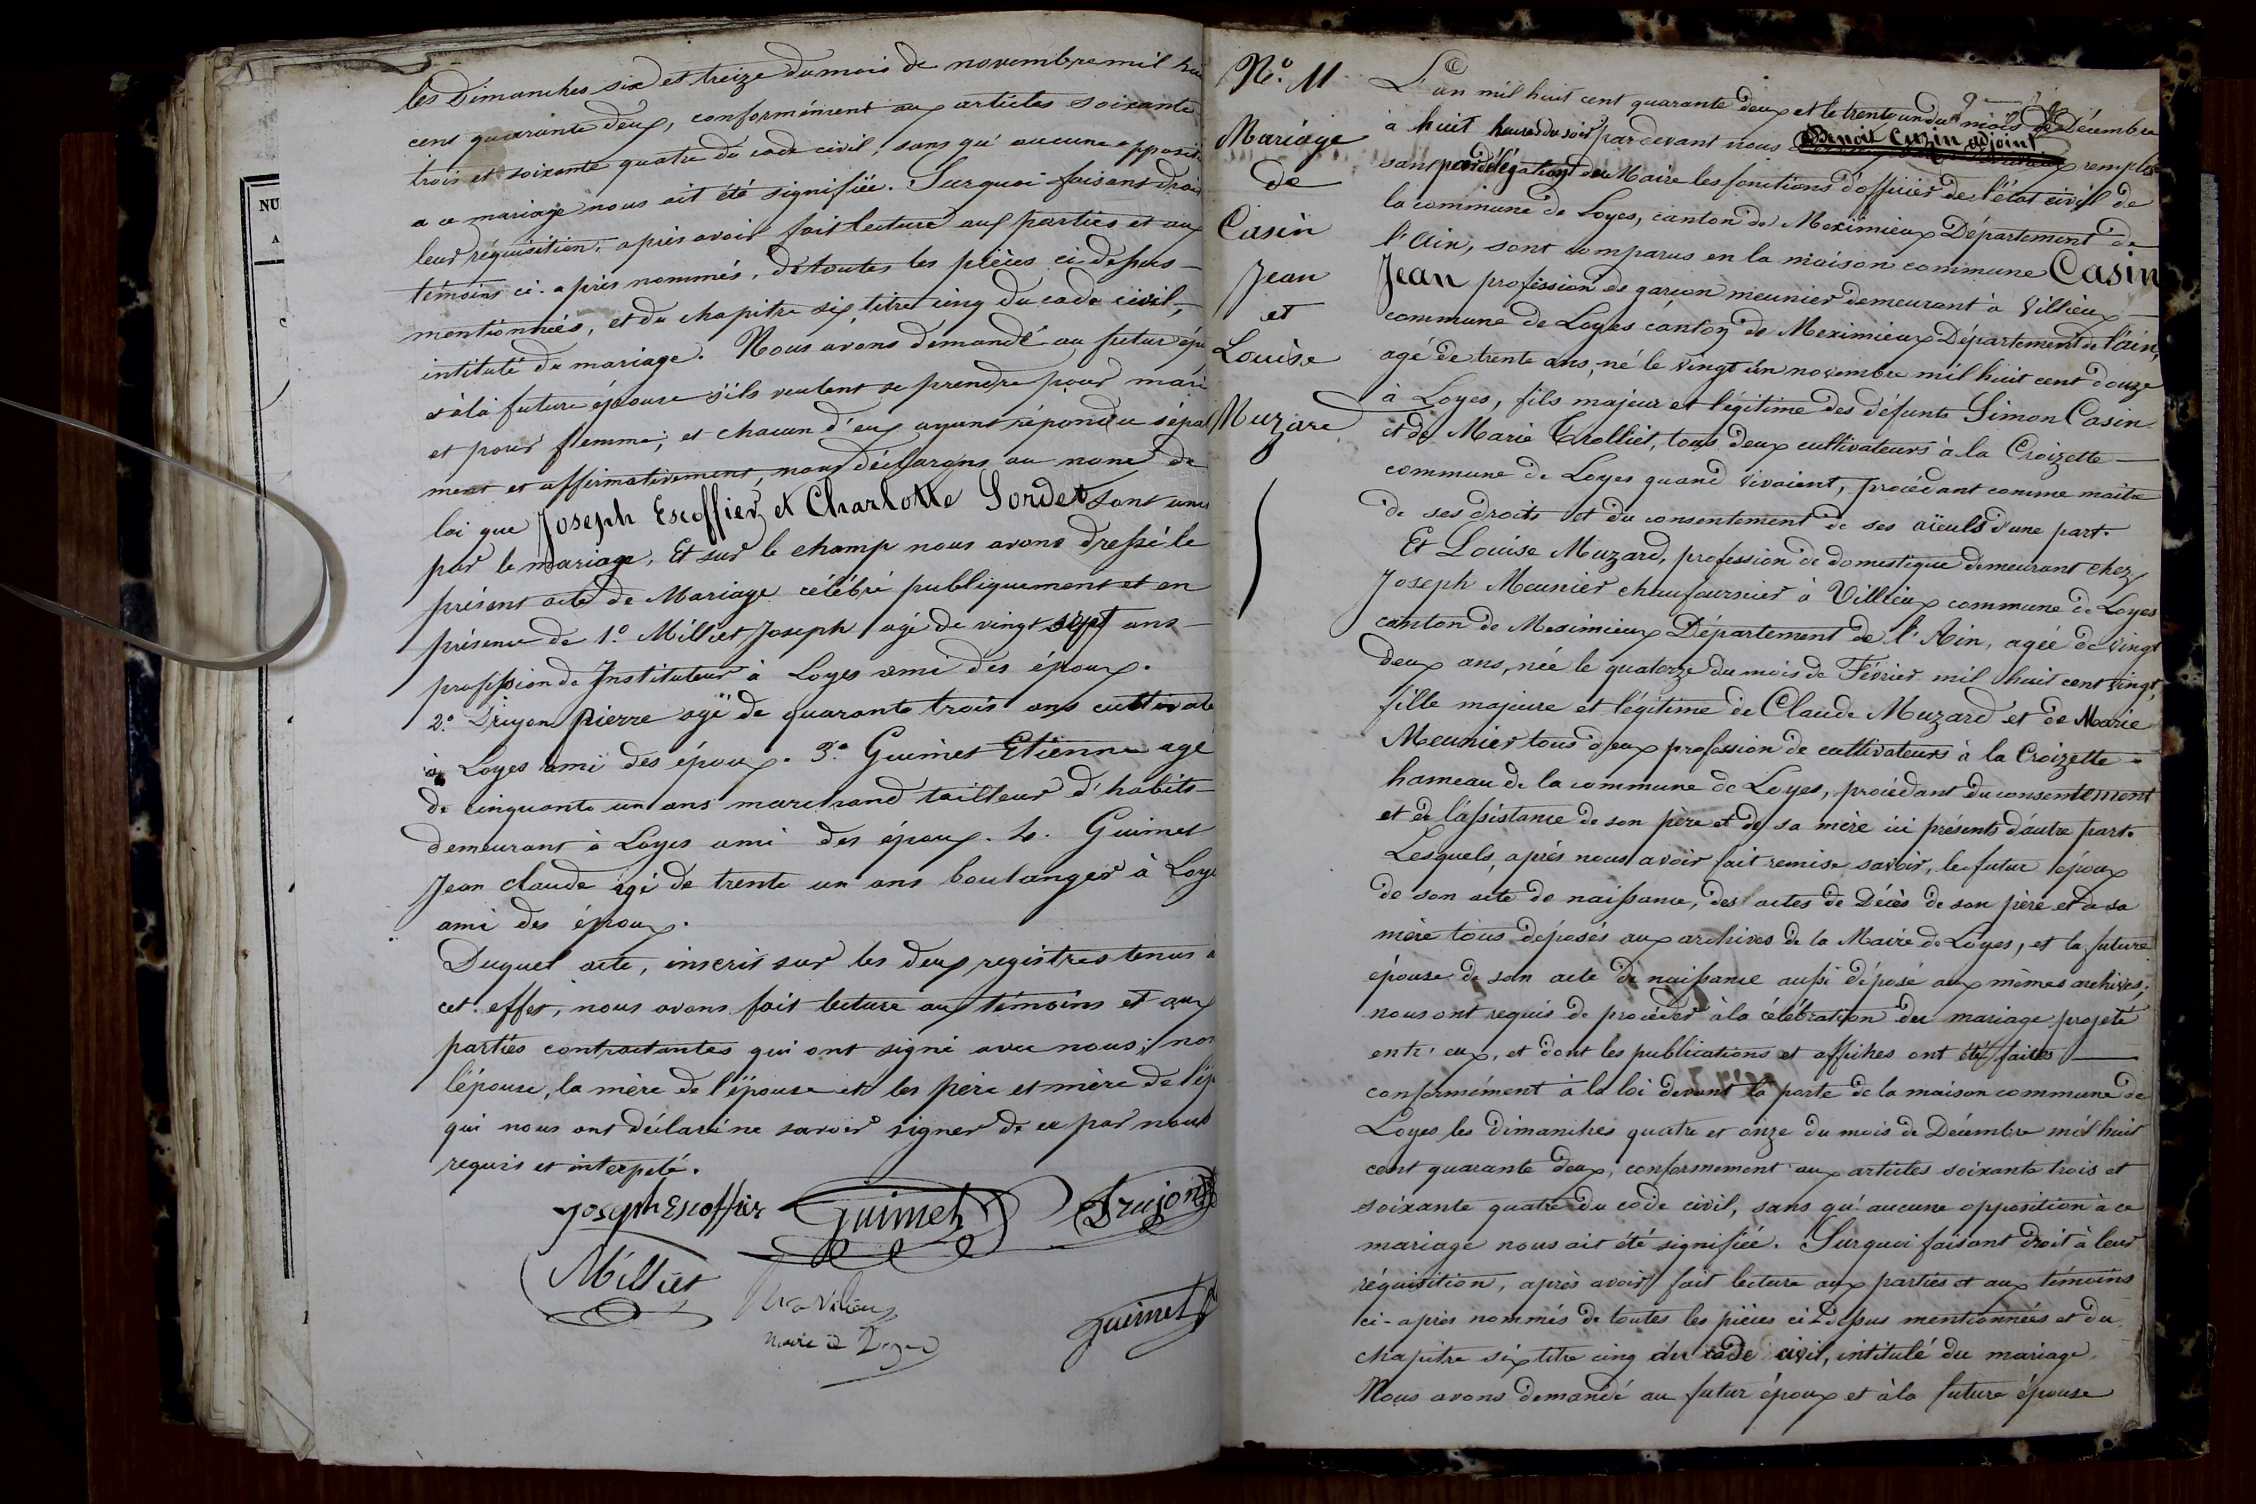 les Dimanches six et treize du mois de novembre mil hui
cent quarante deux, conformément aux articles soixante
trois et soixante quatre du code civil, sans qu'aucune opposit
a ce mariage nous ait été signifiée. Surquoi faisant droit
leur réquisition, après avoir fait lecture aux parties et aux
témoins ci-après nommés, de toutes les pièces ci-dessus
mentionnées, et du chapitre six, titre cinq du code civil,
intitulé du mariage. Nous avons demandé au futur épo
et à la future épouse s'ils veulent se prendre pour mari
et pour femme; et chacun d'eux ayant répondu sépar
ment et affirmativement, nous déclarons au nom de
loi que Joseph Escoffier et Charlotte Sordet sont unis
par le mariage. Et sur le champ nous avons dressé le
présent acte de Mariage célébré publiquement et en
présence de 1.° Milliet Joseph agé de vingt sept ans
profession de Instituteur à Loyes ami des époux.
2.° Drujon Pierre agé de quarante trois ans cultivate
à Loyes ami des époux. 3.° Guimet Etienne agé
de cinquante un ans marchand tailleur d'habits
demeurant à Loyes ami des époux. 4. Guimet
Jean claude agé de trente un ans boulanger à Loye
ami des époux.
Duquel acte, inscrit sur les deux registres tenus à
cet effet, nous avons fait lecture aux témoins et aux
parties contractantes qui ont signé avec nous; non
l'épouse, la mère de l'épouse et les père et mère de l'ép
qui nous ont déclaré ne savoir signer de ce par nous
requis et interpelé.
Joseph Escoffier Guimet Drujon
Milliet
Guimet
NU
A
N.° 11
Mariage
de
Casin
Jean
et
Louise
Muzard
L'an mil huit cent quarante deux et le trente un du mois de Décembre
à huit heures du soir pardevant nous Benoit Cuzin adjoint remplis
sant par délégation du Maire les fonctions d'officier de l'état civil de
la commune de Loyes, canton de Meximieux Département de
l'Ain, sont comparus en la maison commune Casin
Jean profession de garcon meunier demeurant à Villieux
commune de Loyes canton de Meximieux Département de l'ain,
agé de trente ans, né le vingt un novembre mil huit cent douze
à Loyes, fils majeur et légitime des défunts Simon Casin
et de Marie Trolliet, tous deux cultivateurs à la Croizette
commune de Loyes quand vivaient, procédant comme maitre
de ses droits et du consentement de ses aïeuls d'une part.
Et Louise Muzard, profession de domestique demeurant chez
Joseph Meunier chaufournier à Villieux commune de Loyes
canton de Meximieux Département de l'Ain, agée de vingt
deux ans, née le quatorze du mois de Février mil huit cent vingt,
fille majeure et légitime de Claude Muzard et de Marie
Meunier tous deux profession de cultivateurs à la Croizette
hameau de la commune de Loyes, procédant du consentement
et de l'assistance de son père et de sa mère ici présents d'autre part.
Lesquels, après nous avoir fait remise savoir, le futur époux
de son acte de naissance, des actes de Décès de son père et de sa
mère tous déposés aux archives de la Mairie de Loyes, et la future
épouse de son acte de naissance aussi déposé aux mêmes archives;
nous ont requis de procéder à la célébration du mariage projeté
entr'eux, et dont les publications et affiches ont été faites
conformément à la loi devant la porte de la maison commune de
Loyes les dimanches quatre et onze du mois de Décembre mil huit
cent quarante deux, conformement aux articles soixante trois et
soixante quatre du code civil, sans qu'aucune opposition à ce
mariage nous ait été signifiée. Surquoi faisant droit à leur
réquisition, après avoir fait lecture aux parties et aux témoins
ci-après nommés de toutes les pièces ci-dessus mentionnées et du
chapitre six titre cinq du code civil, intitulé du mariage.
Nous avons demandé au futur époux et à la future épouse